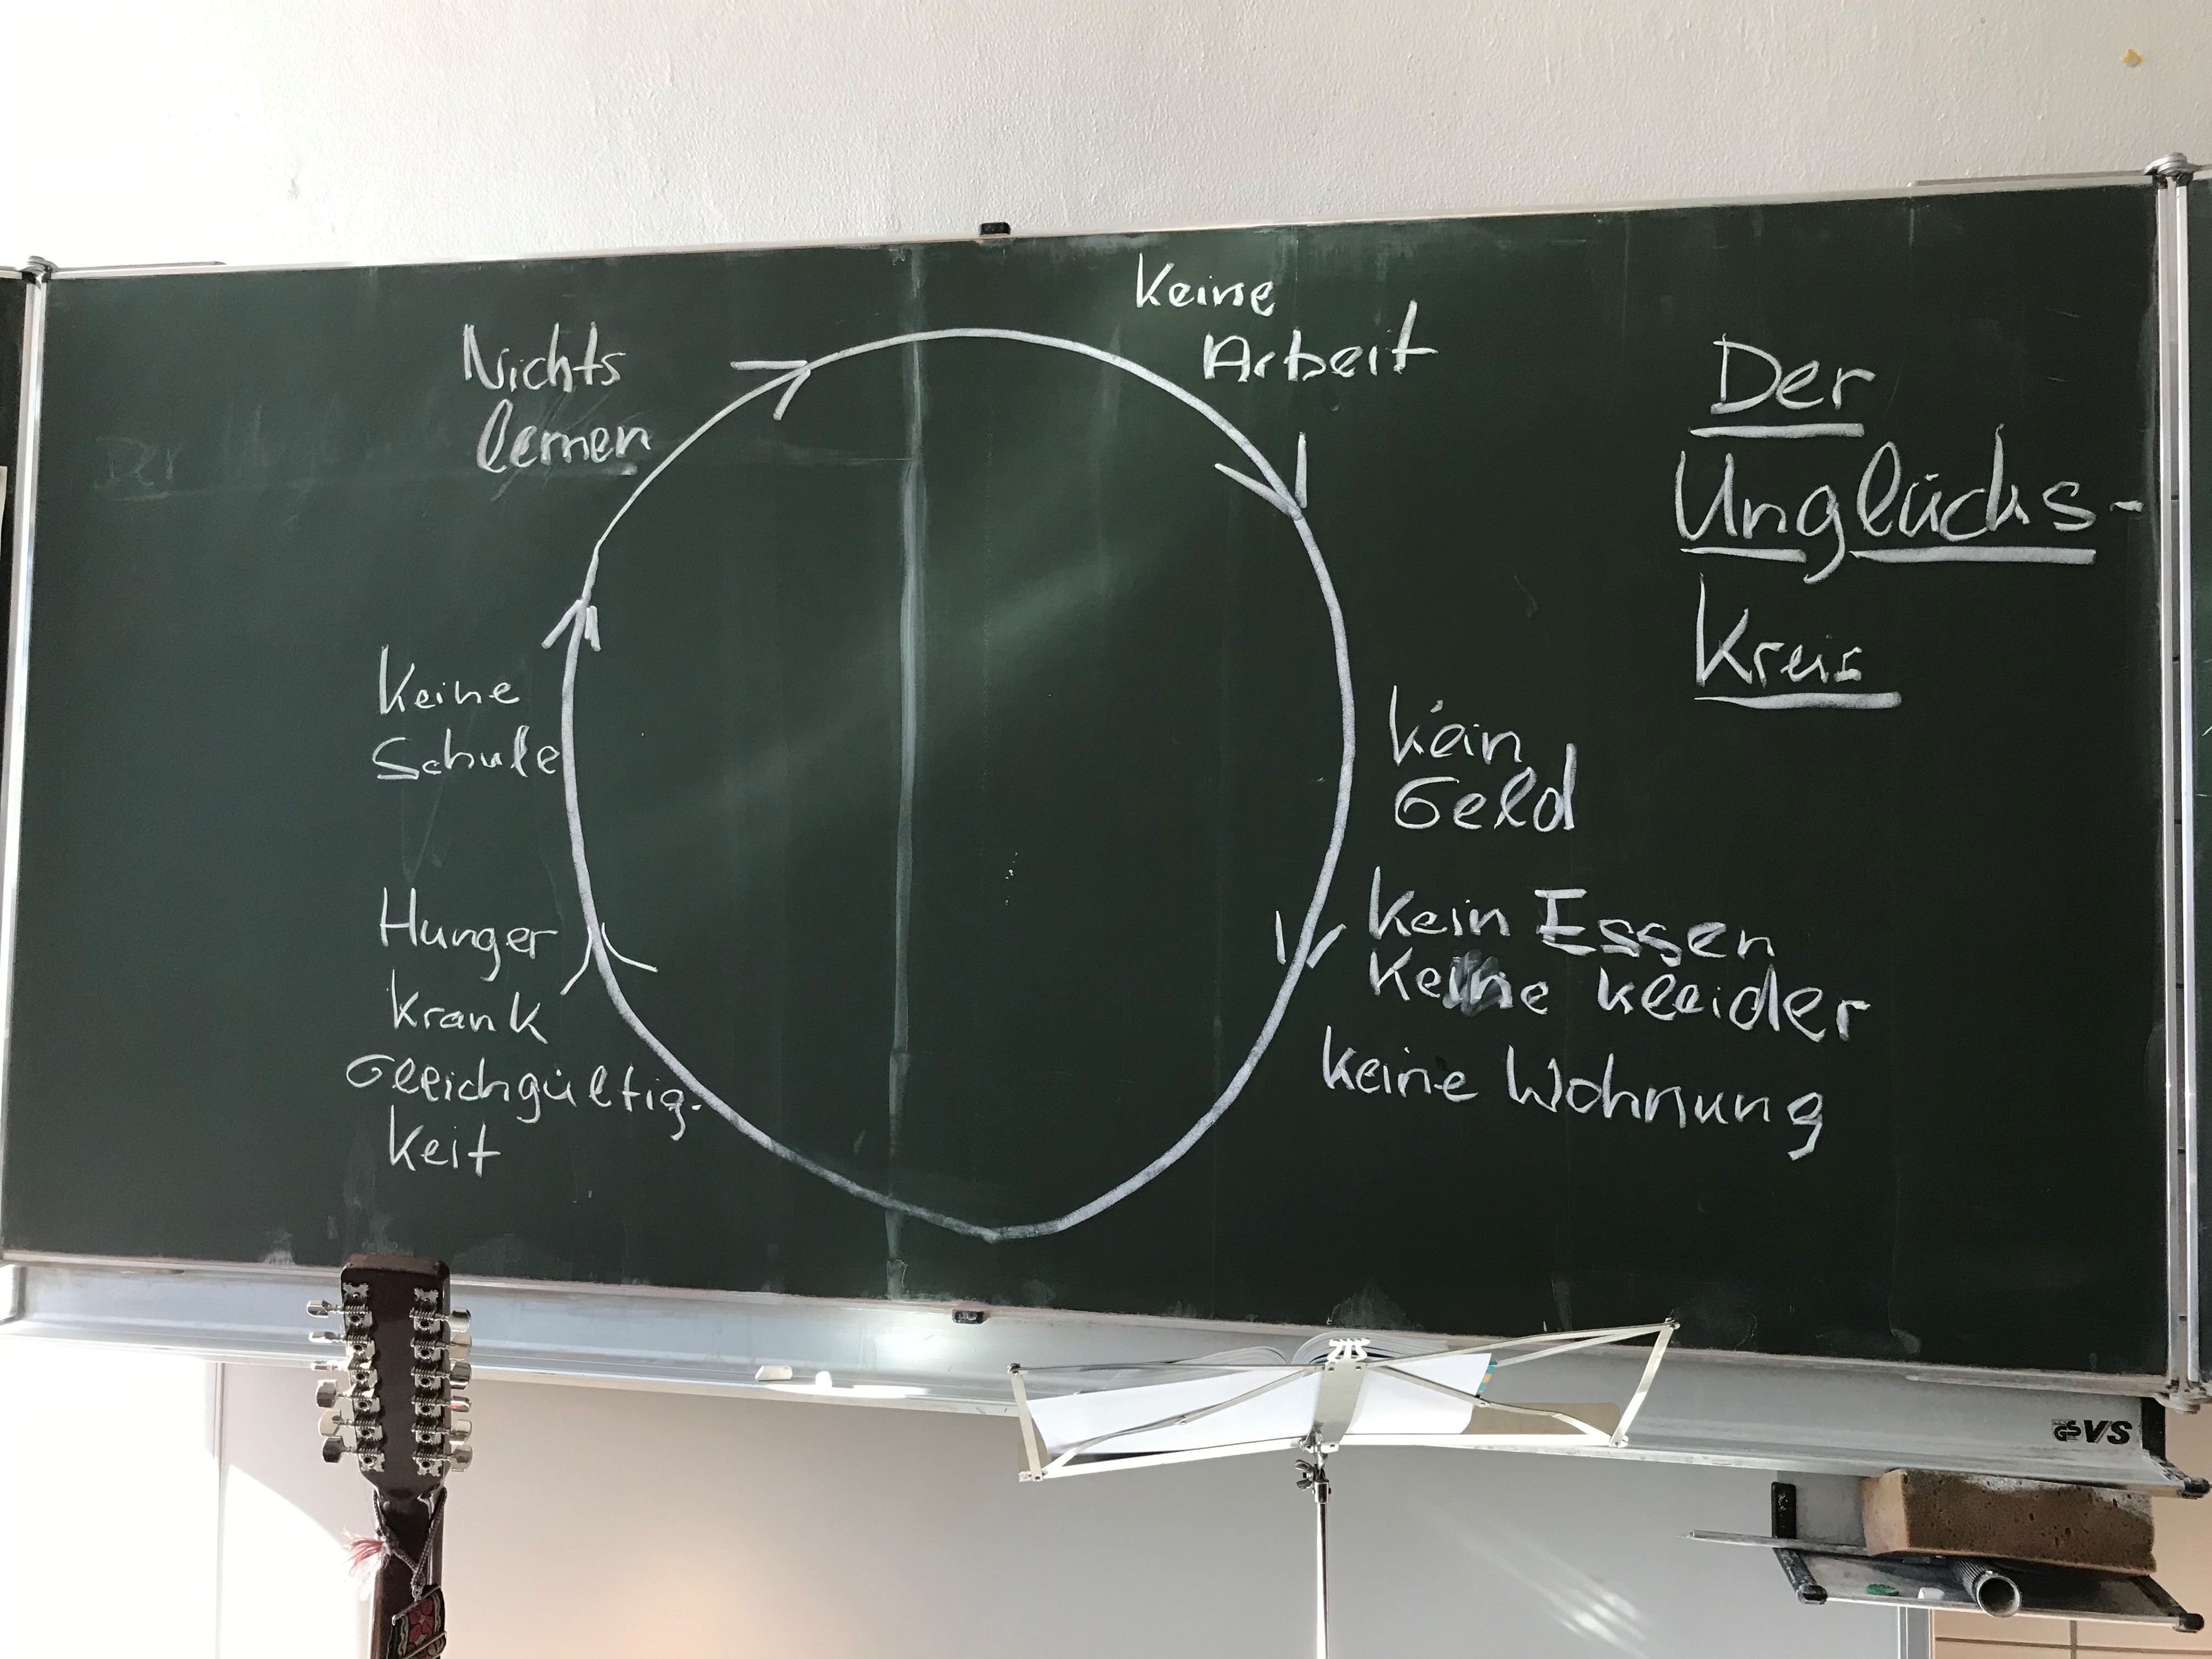 Keine
Arbeit
Nichts
lernen
Der
Unglücks-
Kreis
Keine
Schule
kein
Geld
Hunger
krank
Gleichgültig-
keit
kein Essen
Keine kleider
keine Wohnung
Der
GS VS